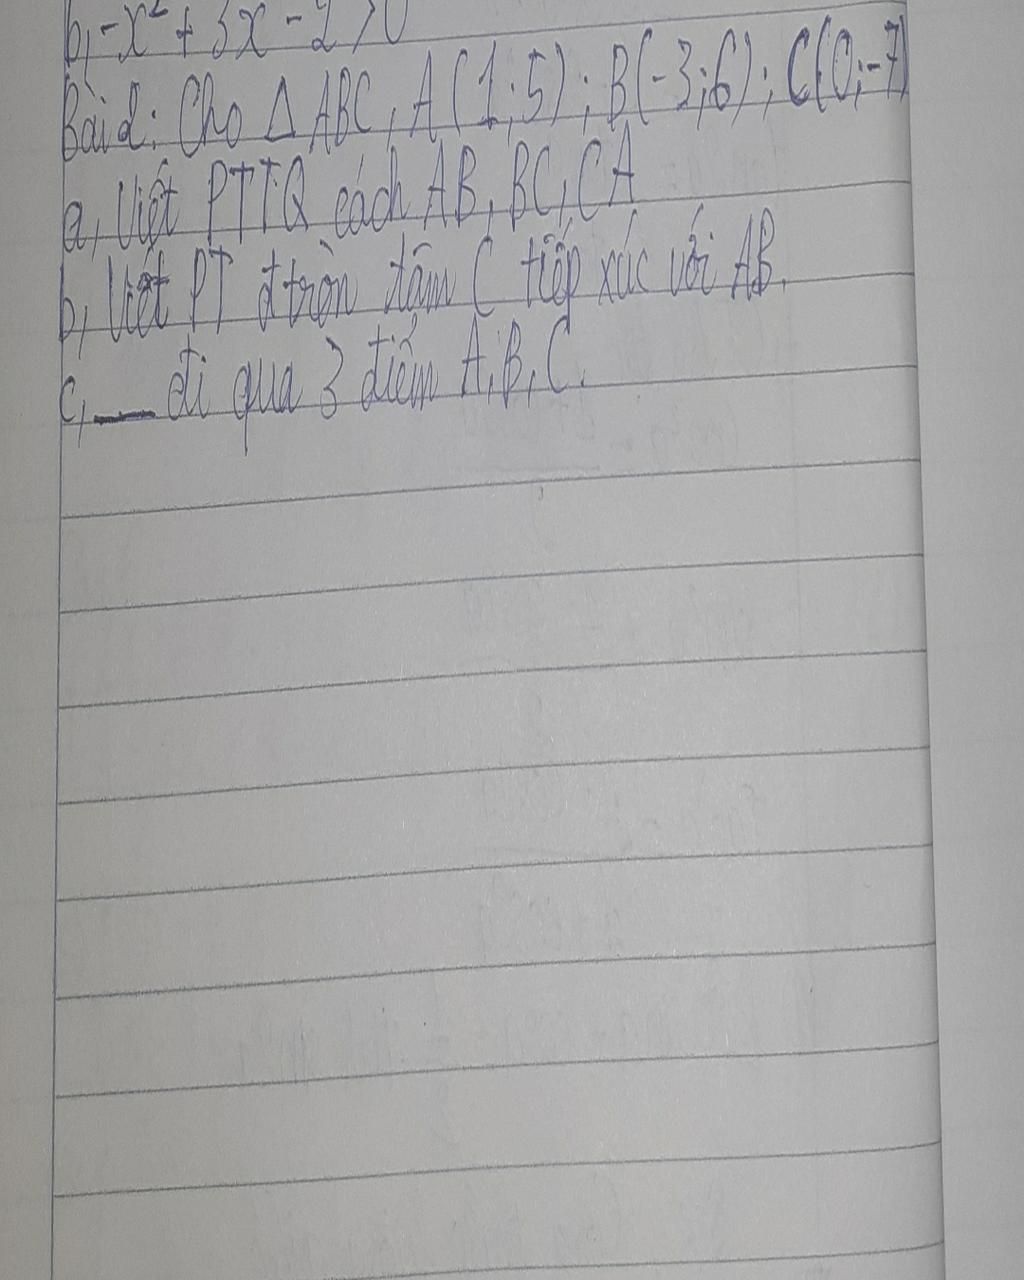 b, -x² + 3x - 2 > 0
Bài 2: Cho Δ ABC, A(1;5); B(-3;6); C(0;-7)
a, Viết PTTQ cách AB, BC, CA
b, Viết PT đtròn tâm C tiếp xúc với AB.
c, — đi qua 3 điểm A, B, C.